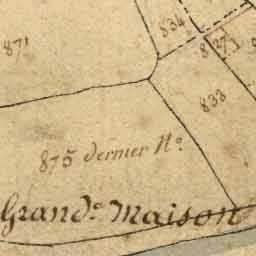 834
871
837
833
875 dernier N.o
Grand.e Maison